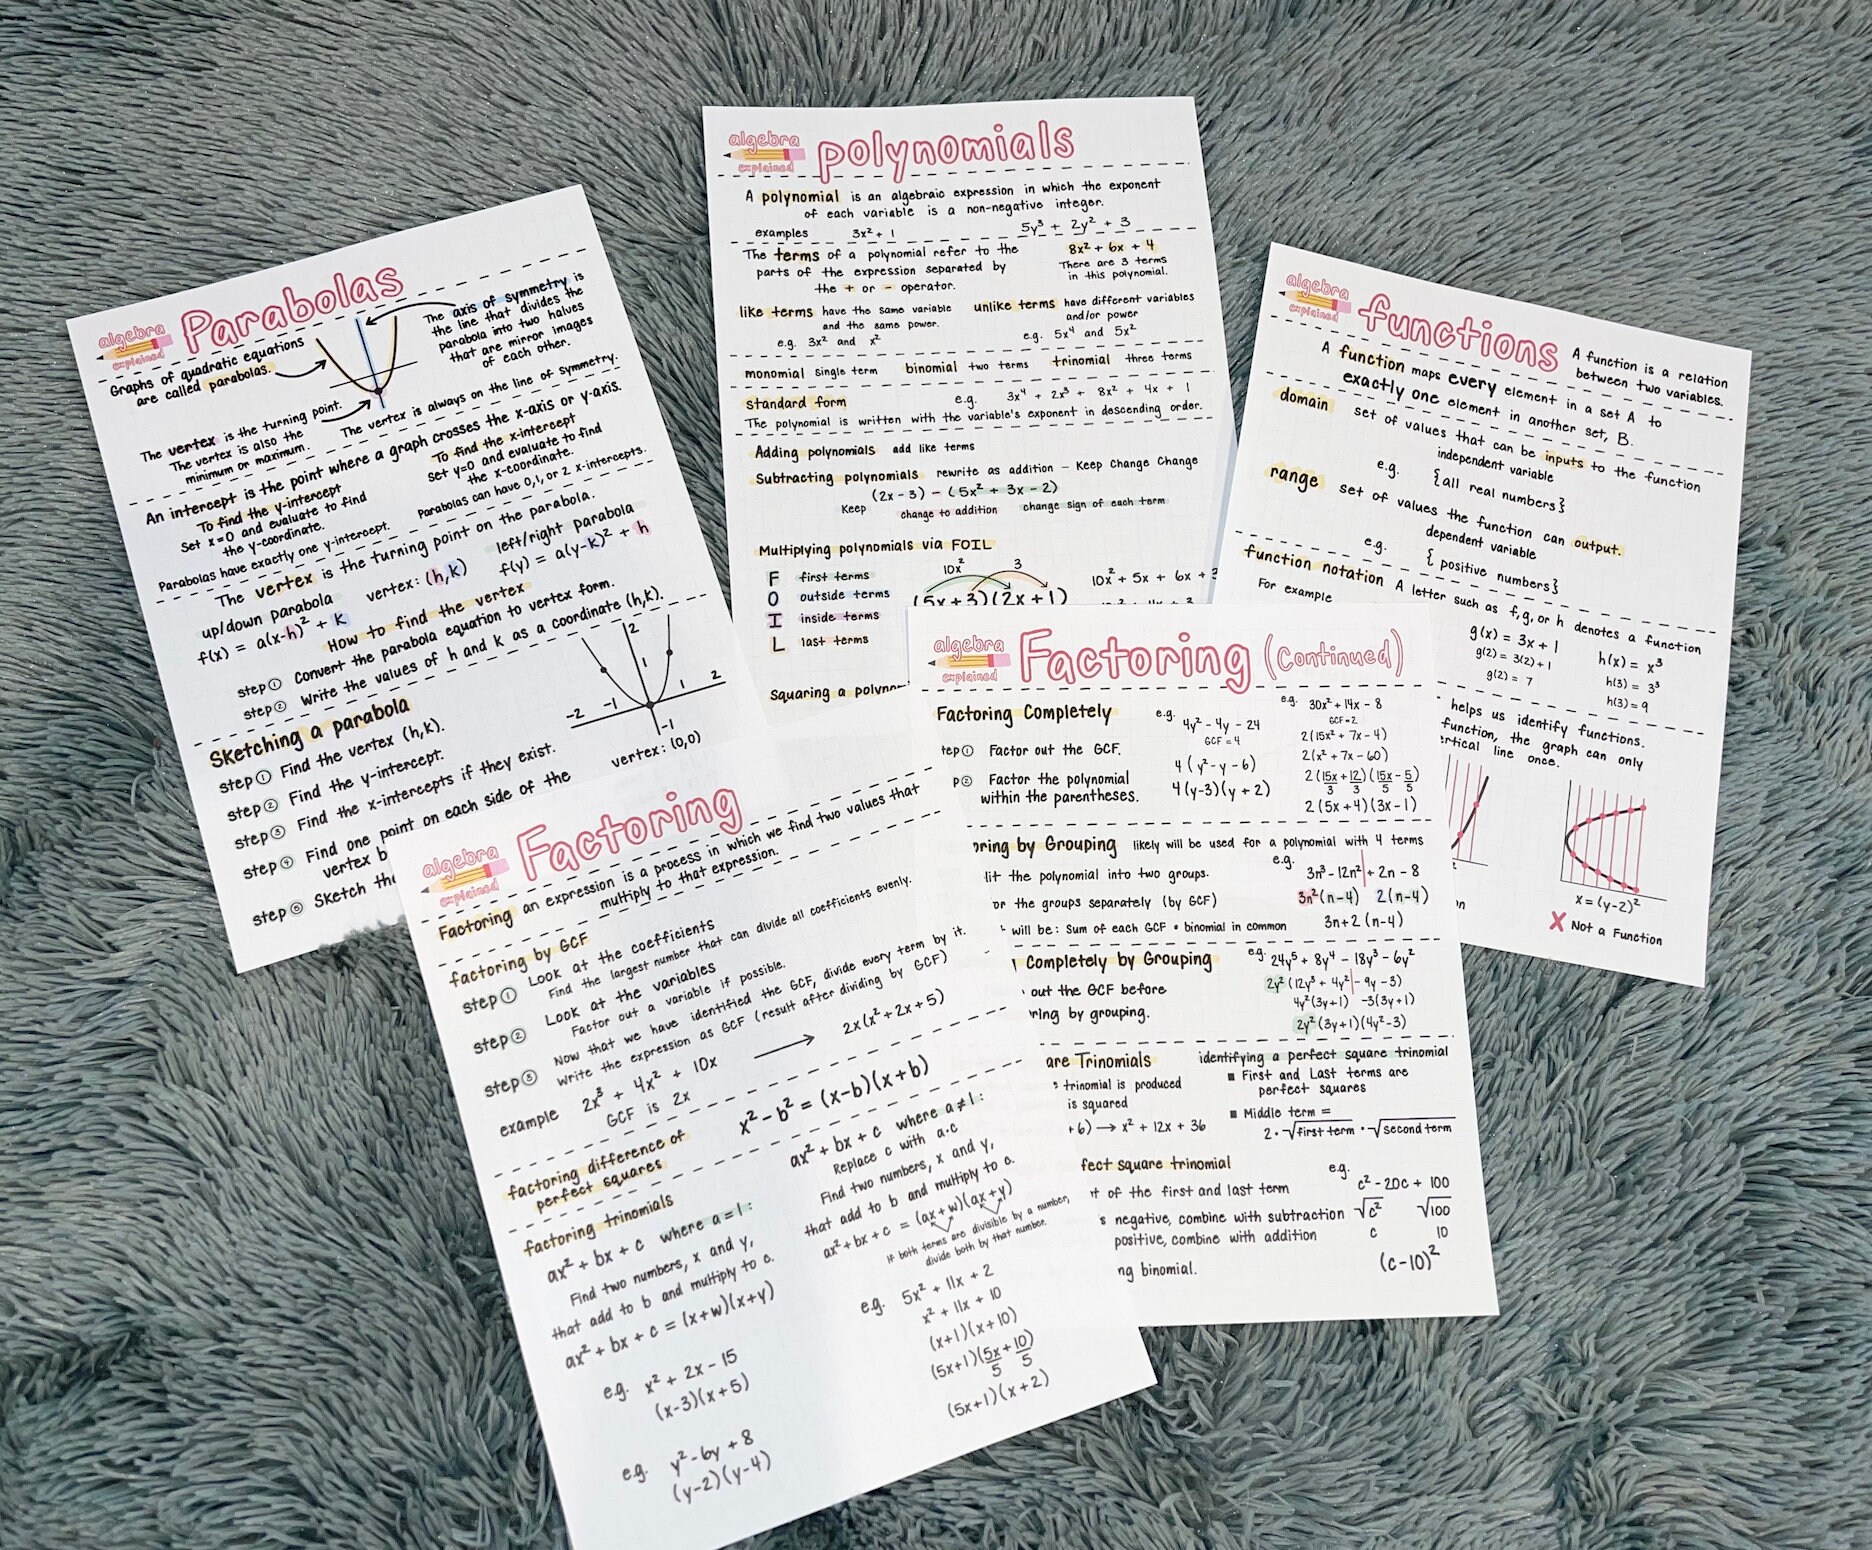 algebra
explained
Parabolas
Graphs of quadratic equations
are called parabolas.
The axis of symmetry is
the line that divides the
parabola into two halves
that are mirror images
of each other.
The vertex is the turning point.
The vertex is also the
minimum or maximum.
The vertex is always on the line of symmetry.
An intercept is the point where a graph crosses the x-axis or y-axis.
To find the y-intercept
Set x=0 and evaluate to find
the y-coordinate.
Parabolas have exactly one y-intercept.
To find the x-intercept
set y=0 and evaluate to find
the x-coordinate.
Parabolas can have 0,1, or 2 x-intercepts.
The vertex is the turning point on the parabola.
up/down parabola
f(x) = a(x-h)² + k
vertex: (h,k)
left/right parabola
f(y) = a(y-k)² + h
How to find the vertex
step ① Convert the parabola equation to vertex form.
step ② Write the values of h and k as a coordinate (h,k).
Sketching a parabola
step ① Find the vertex (h,k).
step ② Find the y-intercept.
step ③ Find the x-intercepts if they exist.
step ④ Find one point on each side of the
vertex b
step ⑤ Sketch the
2
1
-2 -1 1 2
-1
vertex: (0,0)
algebra
explained
polynomials
A polynomial is an algebraic expression in which the exponent
of each variable is a non-negative integer.
examples 3x² + 1 5y³ + 2y² + 3
The terms of a polynomial refer to the
parts of the expression separated by
the + or - operator.
8x² + 6x + 4
There are 3 terms
in this polynomial.
like terms have the same variable
and the same power.
e.g. 3x² and x²
unlike terms have different variables
and/or power
e.g. 5x⁴ and 5x²
monomial single term binomial two terms trinomial three terms
standard form e.g. 3x⁴ + 2x³ + 8x² + 4x + 1
The polynomial is written with the variable's exponent in descending order.
Adding polynomials add like terms
Subtracting polynomials rewrite as addition - Keep Change Change
(2x-3) - (5x² + 3x - 2)
Keep change to addition change sign of each term
Multiplying polynomials via FOIL
F first terms
O outside terms
I inside terms
L last terms
10x² 3
(5x+3)(2x+1)
10x² + 5x + 6x + 3
Squaring a polyno
algebra
explained
functions
A function is a relation
between two variables.
A function maps every element in a set A to
exactly one element in another set, B.
domain set of values that can be inputs to the function
independent variable
e.g. {all real numbers}
range set of values the function can output.
dependent variable
e.g. { positive numbers}
function notation A letter such as f,g, or h denotes a function
For example
g(x) = 3x + 1
g(2) = 3(2) + 1
g(2) = 7
h(x) = x³
h(3) = 3³
h(3) = 9
helps us identify functions.
function, the graph can only
rtical line once.
x = (y-2)²
X Not a Function
algebra
explained
Factoring (Continued)
Factoring Completely
tep ① Factor out the GCF.
p ② Factor the polynomial
within the parentheses.
e.g. 4y² - 4y - 24
GCF = 4
4(y² - y - 6)
4(y-3)(y+2)
e.g. 30x² + 14x - 8
GCF = 2
2(15x² + 7x - 4)
2(x² + 7x - 60)
2(15x + 12)(15x - 5)
3 3 5 5
2(5x+4)(3x-1)
oring by Grouping likely will be used for a polynomial with 4 terms
lit the polynomial into two groups.
or the groups separately (by GCF)
will be: Sum of each GCF • binomial in common
e.g. 3n³ - 12n² + 2n - 8
3n²(n-4) 2(n-4)
3n+2 (n-4)
Completely by Grouping
out the GCF before
ring by grouping.
e.g. 24y⁵ + 8y⁴ - 18y³ - 6y²
2y²(12y³ + 4y² - 9y - 3)
4y²(3y+1) -3(3y+1)
2y²(3y+1)(4y²-3)
are Trinomials
trinomial is produced
is squared
+6) → x² + 12x + 36
identifying a perfect square trinomial
▪ First and Last terms are
perfect squares
▪ Middle term =
2 · √first term · √second term
fect square trinomial
of the first and last term
s negative, combine with subtraction
positive, combine with addition
ng binomial.
e.g. c² - 20c + 100
√c² √100
c 10
(c-10)²
algebra
explained
Factoring
Factoring an expression is a process in which we find two values that
multiply to that expression.
factoring by GCF
step ① Look at the coefficients
Find the largest number that can divide all coefficients evenly.
step ② Look at the variables
Factor out a variable if possible.
step ③ Now that we have identified the GCF, divide every term by it.
Write the expression as GCF (result after dividing by GCF)
example 2x³ + 4x² + 10x → 2x(x² + 2x + 5)
GCF is 2x
factoring difference of
perfect squares
x² - b² = (x-b)(x+b)
factoring trinomials
ax² + bx + c where a=1:
Find two numbers, x and y,
that add to b and multiply to c.
ax² + bx + c = (x+w)(x+y)
e.g. x² + 2x - 15
(x-3)(x+5)
e.g. y² - 6y + 8
(y-2)(y-4)
ax² + bx + c where a≠1:
Replace c with a·c
Find two numbers, x and y,
that add to b and multiply to c.
ax² + bx + c = (ax+w)(ax+y)
If both terms are divisible by a number,
divide both by that number.
e.g. 5x² + 11x + 2
x² + 11x + 10
(x+1)(x+10)
(5x+1)(5x+10)
5 5
(5x+1)(x+2)